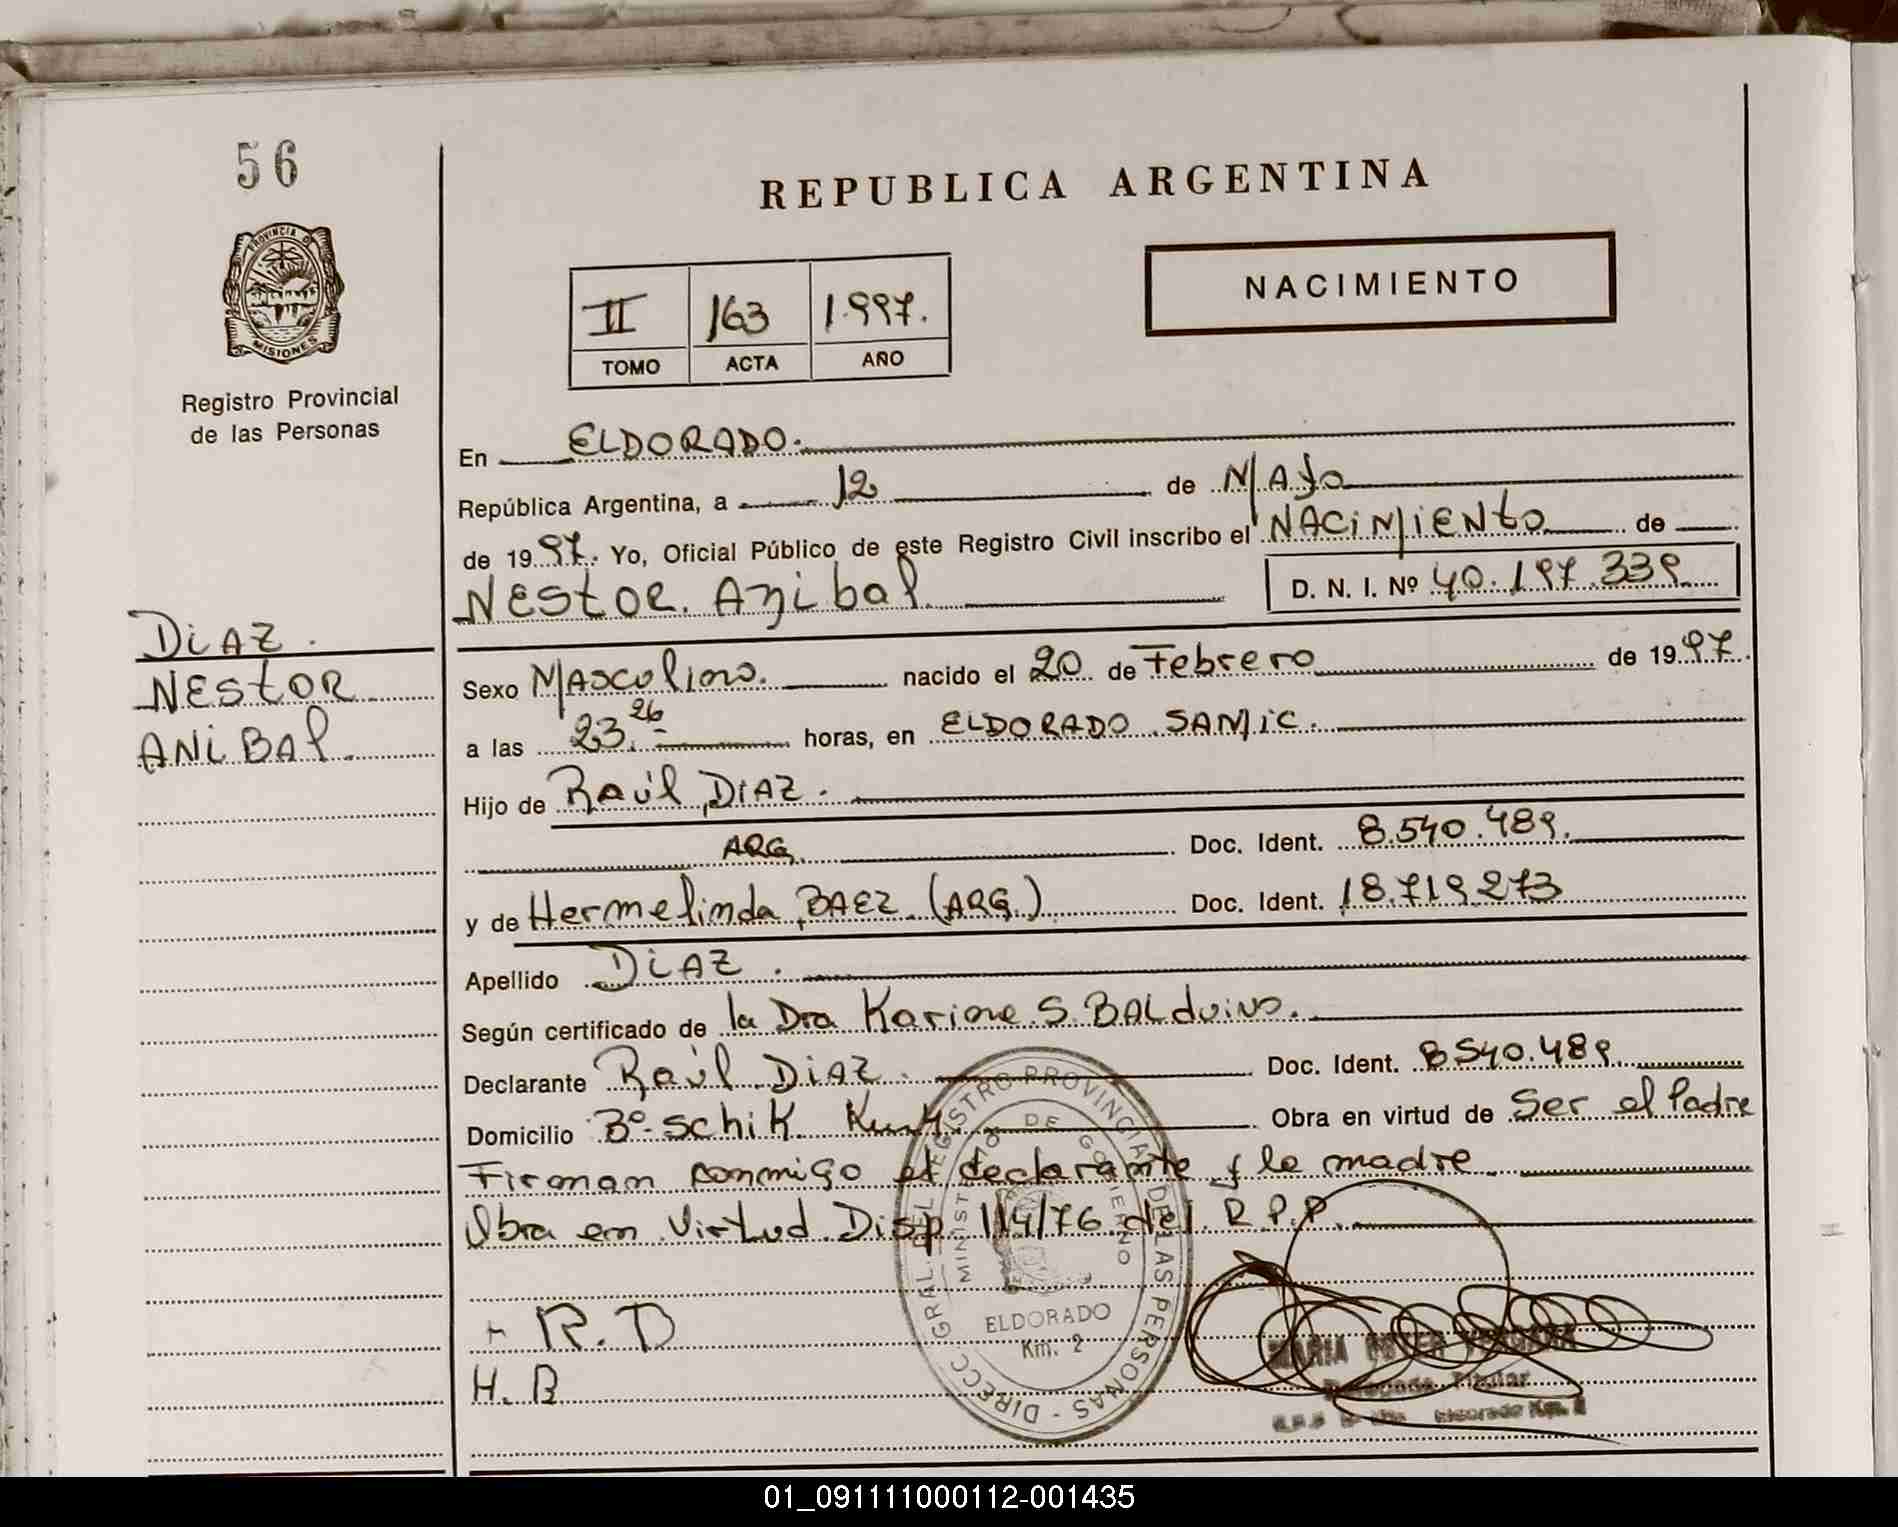 56
PROVINCIA DE
MISIONES
Registro Provincial
de las Personas
DiAZ.
NEStOR
ANiBAl.
REPUBLICA ARGENTINA
NACIMIENTO
II 163 1.997.
TOMO ACTA AÑO
En ELDORADO.
República Argentina, a 12 de MAyo
de 1997. Yo, Oficial Público de este Registro Civil inscribo el NACiMiENto de
NEStOR. Anibal. D. N. I. Nº 40.197.339
Sexo MAsculino. nacido el 20 de Febrero de 1997.
a las 23.26 horas, en ELDORADO.SAMiC.
Hijo de Raúl DIAZ.
ARG. Doc. Ident. 8.540.489.
y de Hermelinda BAEZ (ARG.) Doc. Ident. 18.719.273
Apellido DiAZ.
Según certificado de la Dra Karine S. BALduino.
Declarante Raúl DiAZ. Doc. Ident. 8540.489.
Domicilio Bº-Schik Obra en virtud de Ser el Padre
Firman conmigo el declarante y la madre.
Obra en Virtud Disp. 114/76 del R.P.P.
R.D
H.B
DIRECC. GRAL. DEL REGISTRO PROVINCIAL DE LAS PERSONAS
MINISTERIO DE GOBIERNO
ELDORADO
Km. 2
MARIA
Titular
Eldorado Km. 2
01_091111000112-001435